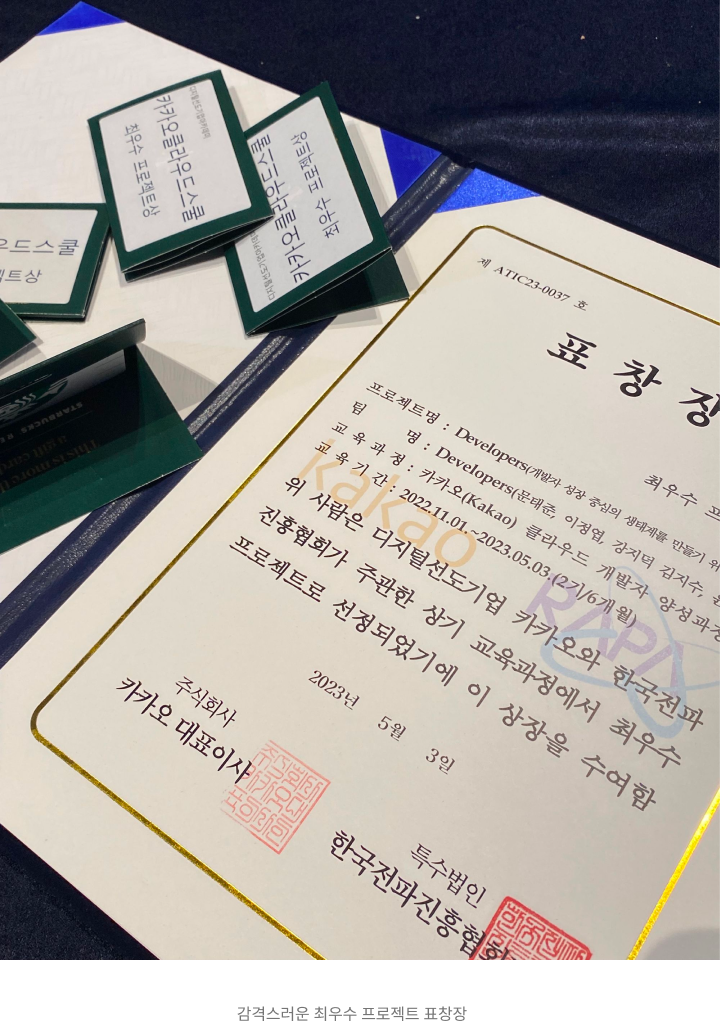 카카오클라우드스쿨
최우수 프로젝트상
카카오클라우드스쿨
최우수 프로젝트상
우드스쿨
트상
STARBUCKS
제 ATIC23-0037 호
표 창 장
최우수
프로젝트명 : Developers(개발자 성장 중심의 생태계를 만들기 위
팀 명 : Developers(문태준, 이정엽, 강지덕, 김지수,
교 육 과 정 : 카카오(Kakao) 클라우드 개발자 양성과정
교 육 기 간 : 2022.11.01.~2023.05.03.(2기/6개월)
위 사람은 디지털선도기업 카카오와 한국전파
진흥협회가 주관한 상기 교육과정에서 최우수
프로젝트로 선정되었기에 이 상장을 수여함
kakao
RAPA
2023년 5월 3일
주식회사
카카오 대표이사
특수법인
한국전파진흥협회
감격스러운 최우수 프로젝트 표창장